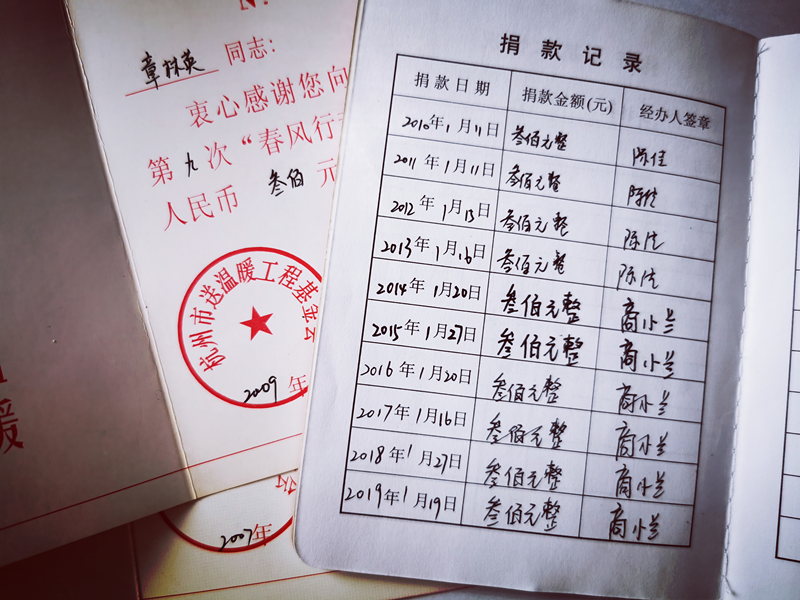 章林英 同志：
衷心感谢您向
第九次“春风行
人民币 叁佰 元
杭州市送温暖工程基金会
2009年
2007年
暖
捐款记录
捐款日期 捐款金额(元) 经办人签章
2010年1月11日 叁佰元整 陈佳
2011年1月11日 叁佰元整 陈佳
2012年1月13日 叁佰元整 陈佳
2013年1月16日 叁佰元整 陈佳
2014年1月20日 叁佰元整 商小兰
2015年1月27日 叁佰元整 商小兰
2016年1月20日 叁佰元整 商小兰
2017年1月16日 叁佰元整 商小兰
2018年1月27日 叁佰元整 商小兰
2019年1月19日 叁佰元整 商小兰